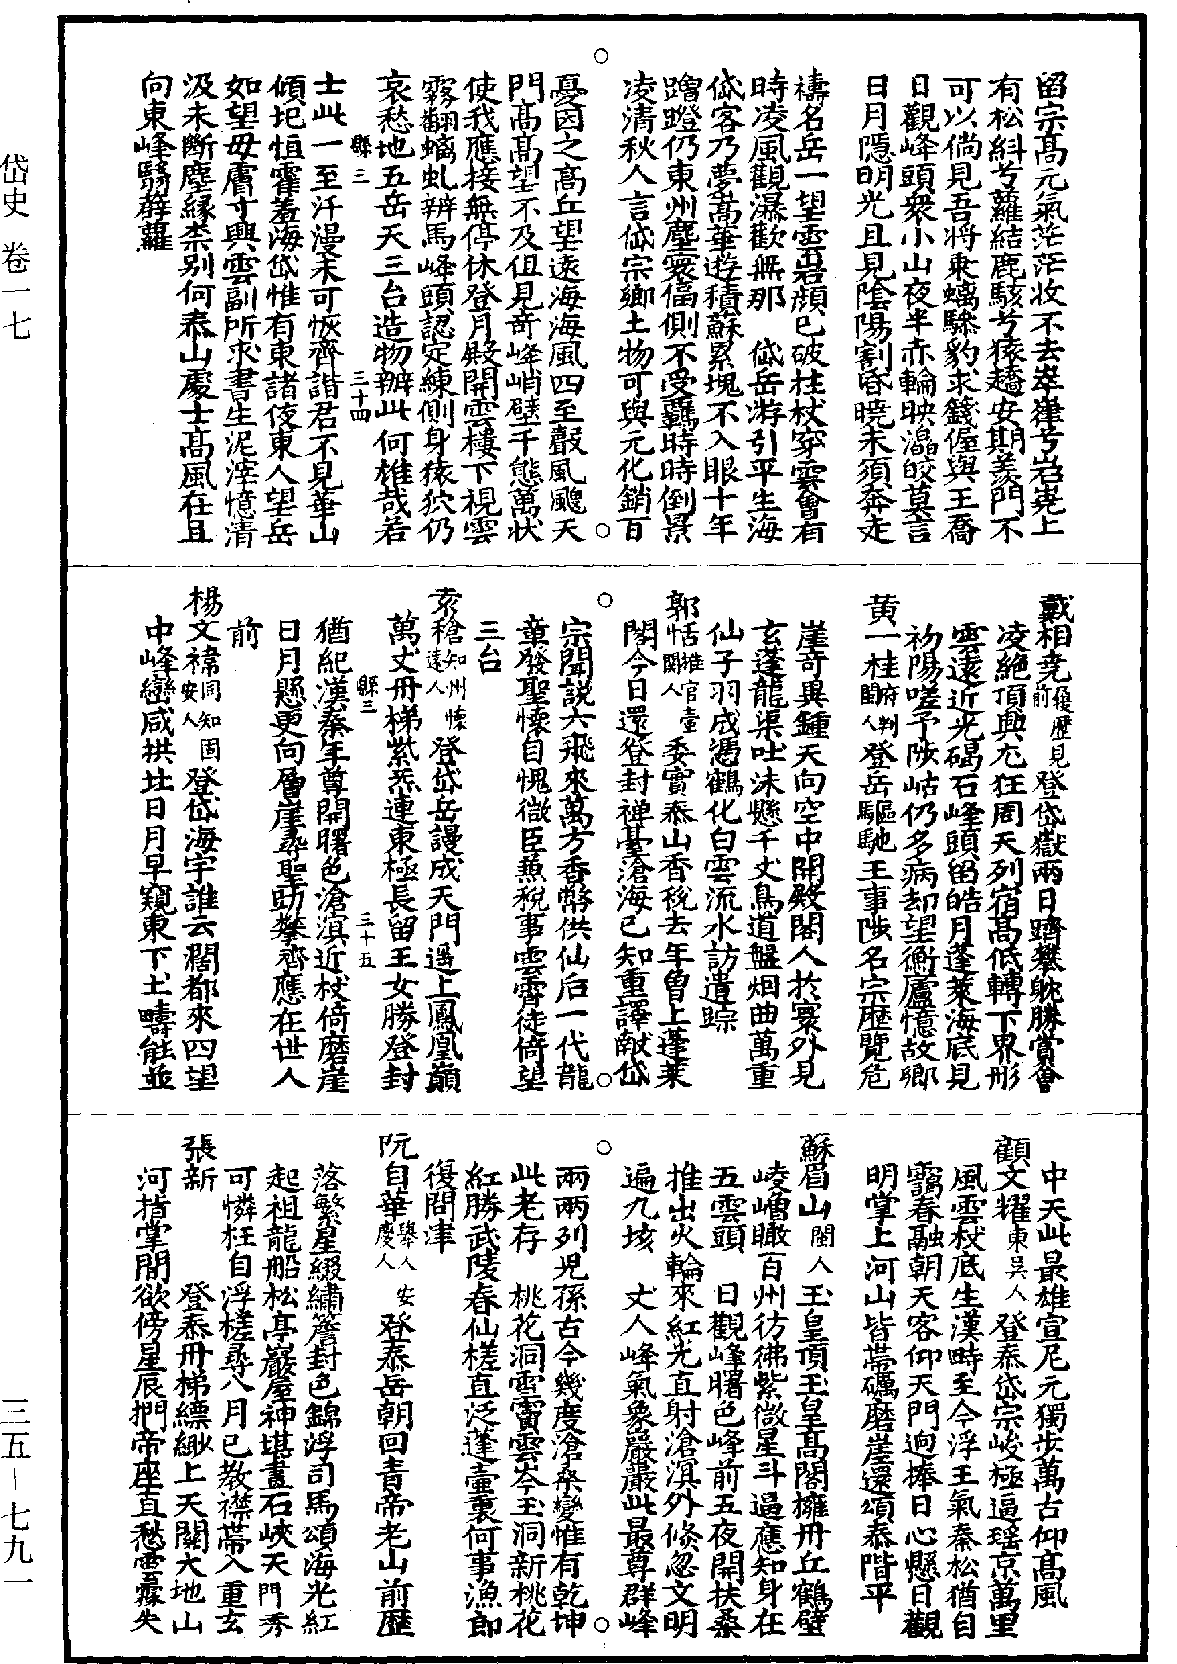 留宗高元氣茫茫收不去崒嵂兮岩嶤上
有松糾兮蘿結鹿駭兮猿趫安期羨門不
可以倘見吾將乘螭驂豹求籛偓與王喬
日觀峰頭衆小山夜半赤輪映滄皎莫言
日月隱明光且見陰陽割昏曉未須奔走
禱名岳一望雲嵓顏已破拄杖穿雲會有
時凌風觀瀑歡無那　岱岳游引平生海
岱客乃夢萬華遊積蘇累塊不入眼十年
蹭蹬仍東州塵寰偪側不受羈時時倒景
凌清秋人言岱宗鄉土物可與元化銷百
憂因之高丘望遠海海風四至聲風颼天
門高高望不及但見奇峰峭壁千態萬狀
使我應接無停休登月殿開雲樓下視雲
霧翻螭虬辨馬峰頭認定練側身猿狖仍
哀愁地五岳天三台造物辦此何雄哉若
縣三
三十四
士此一至汗漫未可恢齊諧君不見華山
傾圮恒霍羞海岱惟有東諸侯東人望岳
如望毋膚寸興雲副所求書生泥滓憶清
汲未斷塵緣柰别何泰山處士高風在且
向東峰翳薜蘿
戴相堯復歷見前登岱嶽兩日躋攀躭勝賞會
凌絶頂興尤狂周天列宿高低轉下界形
雲遠近光碣石峰頭留皓月蓬萊海底見
初陽嗟予陟岵仍多病却望衡廬憶故鄉
黄一桂府判閩人登岳驅馳王事陟名宗歷覽危
崖奇異鍾天向空中開殿閣人於寰外見
玄蓬龍渠吐沫懸千丈鳥道盤烟曲萬重
仙子羽成憑鶴化白雲流水訪遺踪
郭恬推官壹關人委實泰山香稅去年曽上蓬萊
閣今日還登封禅臺滄海已知重譯献岱
宗聞説六飛來萬方香幣供仙后一代龍
章發聖懐自愧微臣無稅事雲霄徒倚望
三台
袁穐知州懐遠人登岱岳謾成天門遇上鳳凰巔
萬丈丹梯紫炁連東極長留王女勝登封
縣三
三十五
猶紀漢秦年尊開曙色滄溟近杖倚磨崖
日月懸更向層崖尋聖跡攀齊應在世人
前
楊文褘同知固安人登岱海宇誰云濶都來四望
中峰巒咸拱扯日月早窺東下土疇能並
中天此最雄宣尼元獨步萬古仰高風
顧文耀東吳人登泰岱宗峻極逼瑶京萬里
風雲杖底生漢畤至今浮王氣秦松猶自
靄春融朝天客仰天門逈捧日心懸日觀
明掌上河山皆帶礪磨崖還頌泰階平
蘇眉山閩人玉皇頂玉皇高閣擁丹丘鶴壁
崚嶒瞰百州彷彿紫微星斗逼應知身在
五雲頭　日觀峰曙色峰前五夜開扶桑
推出火輪來紅光直射滄溟外倐忽文明
遍九垓　丈人峰氣象嚴嚴此最尊群峰
兩兩列児孫古今幾度滄桒變惟有乾坤
此老存　桃花洞雲竇雲岑玉洞新桃花
紅勝武陵春仙槎直泛蓬壷裏何事漁郎
復問津
阮自華舉人安慶人登泰岳朝回青帝老山前歴
落繁星綴繡簷封色錦浮司馬頌海光紅
起祖龍船松亭巖屋神堪畫石峽天門秀
可憐枉自浮槎尋八月已教襟帶入重玄
張新　登泰丹梯縹緲上天關大地山
河指掌間欲傍星辰捫帝座直愁雲霧失
岱史　卷一七
三五—七九一